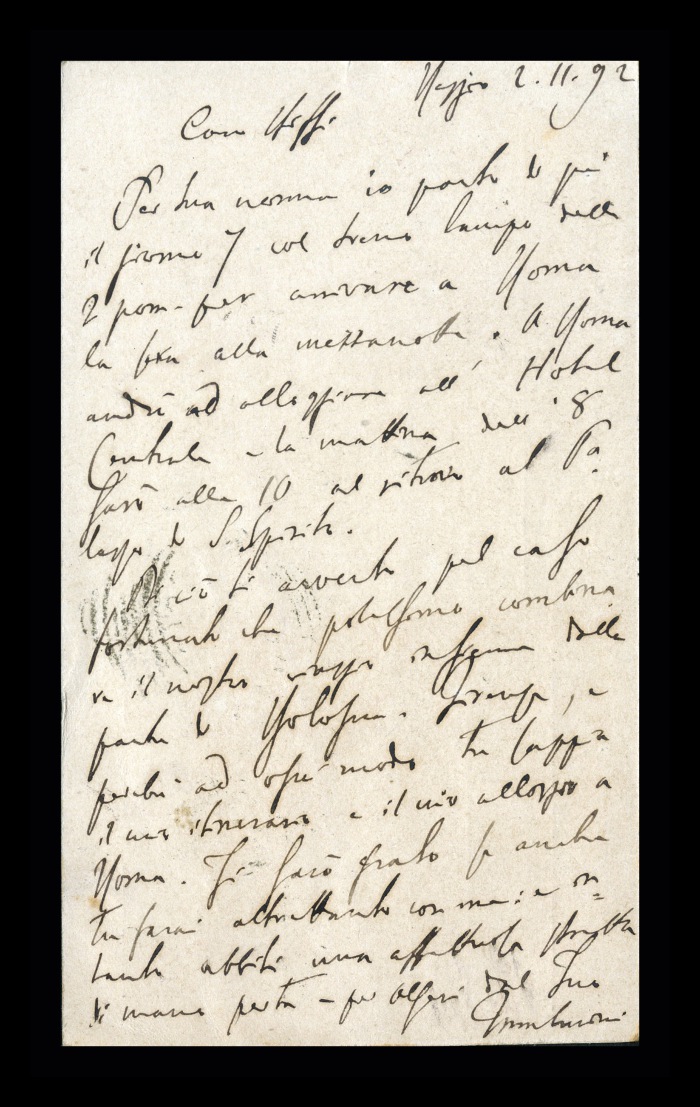 Reggio 2.11.92
Caro
Per tua norma io parto di qui
il giorno 7 col treno lampo delle
2 pom. per arrivare a Roma
la sera alla mezzanotte. A Roma
andrò ad alloggiare all' Hotel
Centrale e la mattina dell' 8
sarò alle 10 al ritrovo al Pa-
lazzo di S. Spirito.
Di ciò ti avverto pel caso
fortunato che potessimo combina
re il nostro viaggio insieme dalla
parte di Bologna - Firenze, e
perchè ad ogni modo tu sappia
il mio itinerario e il mio alloggio a
Roma. Ti sarò grato se anche
tu farai altrettanto con me: e in=
tanto abbiti una affettuosa stretta
di mano per te e per Olferi dal tuo